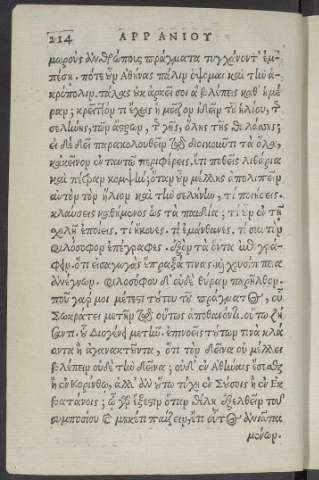 214 ΑΡΡΙΑΝΙΟΥ
μωροὺς ἀνθρώποις πράγματα τυγχάνοντ' ἐμ-
πέσῃ. πότε οὖν Ἀθήνας πάλιν ὄψομαι καὶ τὴν ἀ-
κρόπολιν. τάλας οὐκ ἀρκεῖ σοι ἃ βλέπεις καθ' ἡμέ
ραν; κρεῖττόν τι ἔχεις ἢ μεῖζον ἰδεῖν τοῦ ἡλίου, τῆς
σελήνης, τῶν ἄστρων, τῆς γῆς, ὅλης τῆς θαλάσσης;
εἰ δὲ δὴ παρακολουθεῖς τῷ διοικοῦντι τὰ ὅλα,
κἀκεῖνον ἐν ταυτῷ περιφέρεις. ἔτι ποθεῖς λιθάρια
καὶ πέτραν κομψήν; ὅταν οὖν μέλλῃς ἀπολιπεῖν
αὐτὸν τὸν ἥλιον καὶ τὴν σελήνην, τί ποιήσεις.
κλαύσεις καθήμενος ὡς τὰ παιδία; τί οὖν ἐν τῇ
χολῇ ἐποίεις. τί ἤκουες. τί ἐμάνθανες. τί σαυτὸν
φιλόσοφον ἐπέγραφες. ἐξὸν τὰ ὄντα
φειν. ὅτι εἰσαγωγὰς ἔπραξά τινας. καὶ χρυσίππεια
ἀνέγνων. φιλοσόφου δ' οὐδὲ θύραν παρῆλθον.
ποῦ γάρ μοι μέτεστι τούτου τοῦ πράγματος, οὗ
Σωκράτει μετῆν τῷ οὕτως ἀποθανόντι. οὕτω ζή
σαντι. οὗ Διογένει μετῆν. ἐπινοεῖς τούτων τινὰ κλά
οντα ἢ ἀγανακτοῦντα, ὅτι τὸν δεῖνα οὐ μέλλει
βλέπειν οὐδὲ τὴν δεῖνα; οὐδ' ἐν Ἀθήναις ἔσεσθαι
ἢ ἐν Κορίνθῳ, ἀλλ' ἂν οὕτω τύχῃ ἐν Σούσοις ἢ ἐν Εκ
βατάνοις; ᾧ γὰρ ἔξεστιν ὅταν θέλῃ ἐξελθεῖν τοῦ
συμποσίου καὶ μηκέτι παίζειν, ἔτι οὗτος ἀνιᾶται
μένων.